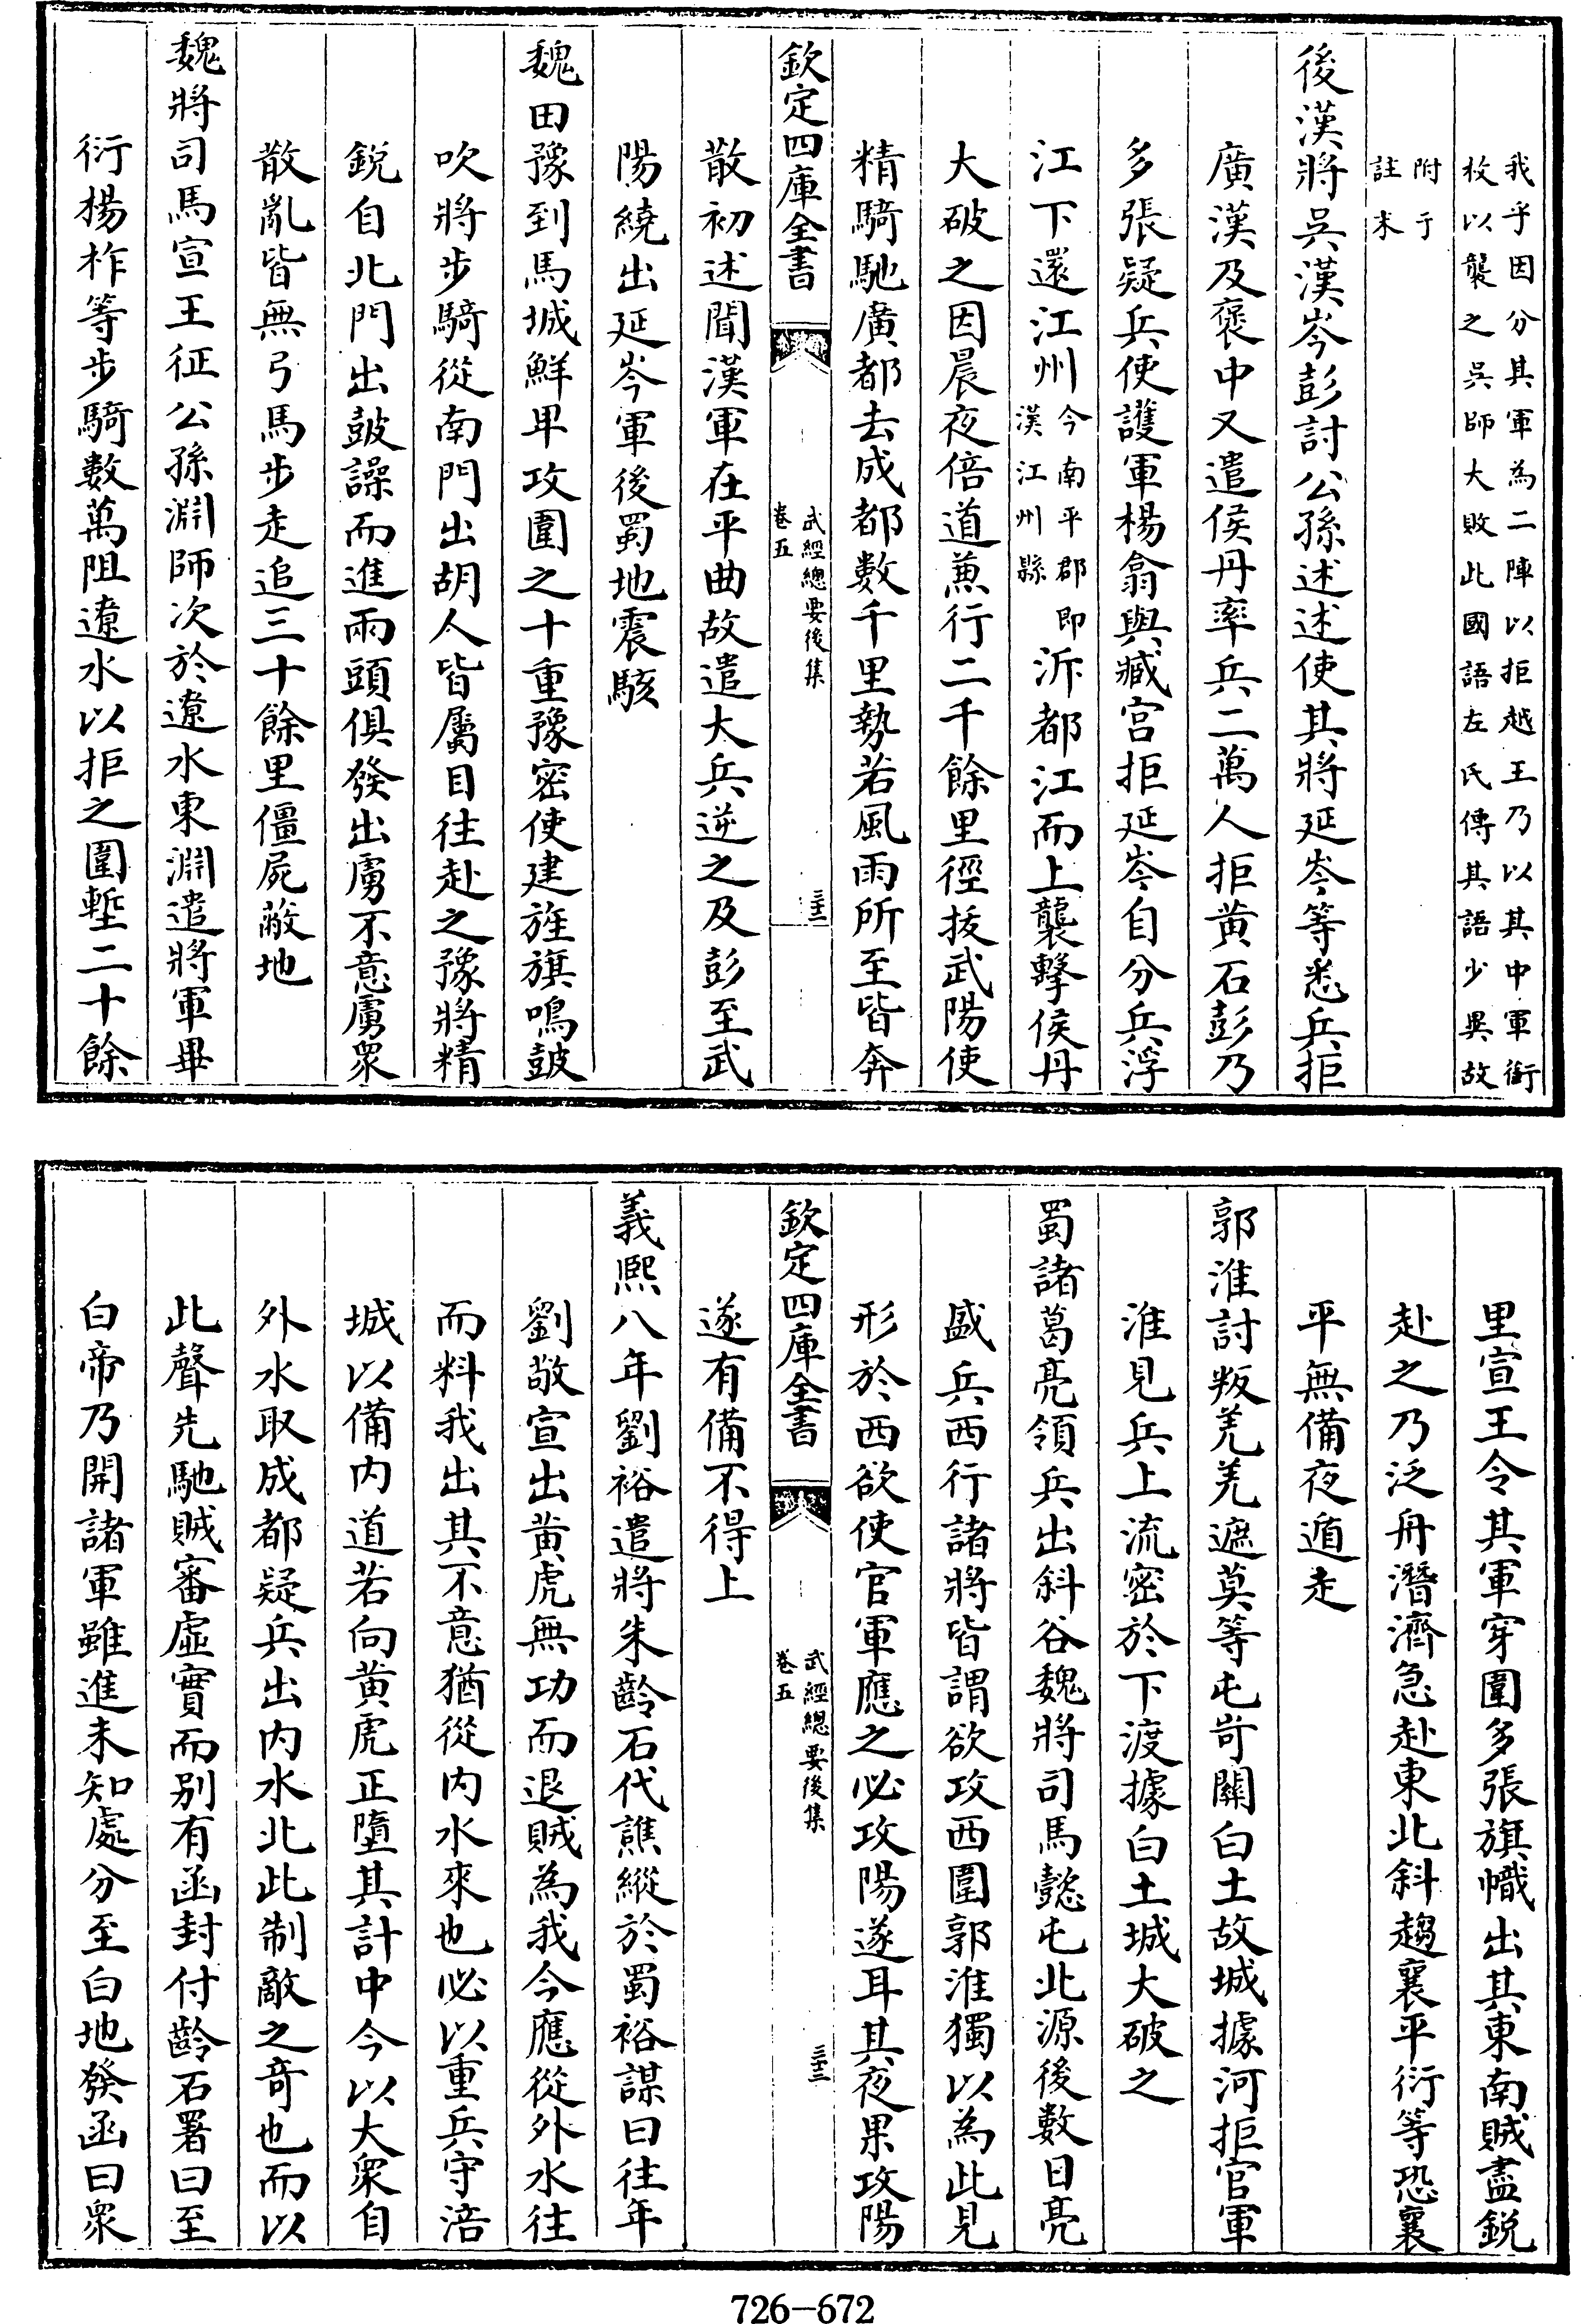 我乎因分其軍為二陣以拒越王乃以其中軍銜
枚以襲之吳師大敗此國語左氏傳其語少異故
附于
註末
後漢將吳漢岑彭討公孫述述使其將延岑等悉兵拒
廣漢及褒中又遣侯丹率兵二萬人拒黄石彭乃
多張疑兵使護軍楊翕與臧宫拒延岑自分兵浮
江下還江州今南平郡即漢江州縣泝都江而上襲擊侯丹
大破之因晨夜倍道兼行二千餘里徑拔武陽使
精騎馳廣都去成都數千里勢若風雨所至皆奔
欽定四庫全書
武經總要後集
卷五
三十二
散初述聞漢軍在平曲故遣大兵逆之及彭至武
陽繞出延岑軍後蜀地震駭
魏田豫到馬城鮮卑攻圍之十重豫密使建旌旗鳴鼓
吹將步騎從南門出胡人皆屬目往赴之豫將精
銳自北門出鼓譟而進兩頭俱發出虜不意虜衆
散亂皆無弓馬步走追三十餘里僵屍蔽地
魏將司馬宣王征公孫淵師次於遼水東淵遣將軍畢
衍楊柞等步騎數萬阻遼水以拒之圍塹二十餘
里宣王令其軍穿圍多張旗幟出其東南賊盡銳
赴之乃泛舟潛濟急赴東北斜趨襄平衍等恐襄
平無備夜遁走
郭淮討叛羌羌遮莫等屯岢關白土故城據河拒官軍
淮見兵上流密於下渡據白土城大破之
蜀諸葛亮領兵出斜谷魏將司馬懿屯北源後數日亮
盛兵西行諸將皆謂欲攻西圍郭淮獨以為此見
形於西欲使官軍應之必攻陽遂耳其夜果攻陽
欽定四庫全書
武經總要後集
卷五
三十三
遂有備不得上
義熙八年劉裕遣將朱齡石代譙縱於蜀裕謀曰往年
劉敬宣出黄虎無功而退賊為我今應從外水往
而料我出其不意猶從内水來也必以重兵守涪
城以備内道若向黄虎正墮其計中今以大衆自
外水取成都疑兵出内水北此制敵之奇也而以
此聲先馳賊審虛實而别有函封付齡石署曰至
白帝乃開諸軍雖進未知處分至白地發函曰衆
726-672